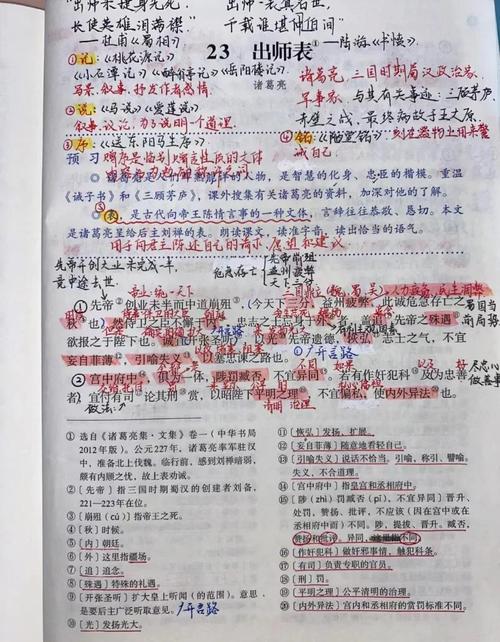 出师未捷身先死,
长使英雄泪满襟
——杜甫《蜀相》
出师一表真名世,
千载谁堪伯仲间
——陆游《书愤》
23 出师表①
诸葛亮
①记:《桃花源记》
《小石潭记》《醉翁亭记》《岳阳楼记》
写景、叙事,抒发作者感情
②说:《马说》《爱莲说》
叙事、议论,为了说明一个道理
③序:《送东阳马生序》
④铭:《陋室铭》刻在器物上用来警
诫自己
诸葛亮,三国时期蜀汉政治家、
军事家、与其有关事迹:三顾茅庐
赤壁之战、最终病故于五丈原
预习
《诫子书》和《三顾茅庐》,课外搜集有关诸葛亮的资料,加深对他的了解。
表,是古代向帝王陈情言事的一种文体,言辞往往恭敬、恳切。本文
是诸葛亮呈给后主刘禅的表。朗读课文,读准字音,读出恰当的语气。
用于向君主陈述自己的请求、愿望和建议
先帝开创大业未完成一半,
竟中途去世
危急存亡
先帝崩殂
益州疲弊
天下三分
①先帝②创业未半而中道崩殂③,今天下三分,益州疲弊,此诚危急存亡之
秋④也。然侍卫之臣不懈于内⑤,忠志之士忘身于外⑥者,盖追⑦先帝之殊遇⑧,
欲报之于陛下也。诚宜开张圣听⑨,以光⑩先帝遗德,恢弘⑪志士之气,不宜
妄自菲薄⑫,引喻失义⑬,以塞忠谏之路也。
广开言路
②宫中府中⑭,俱为一体,陟罚臧否,不宜异同⑮。若有作奸犯科⑯及为忠善
者,宜付有司⑰论其刑⑱赏,以昭陛下平明之理⑲,不宜偏私,使内外异法⑳也。
①选自《诸葛亮集·文集》卷一(中华书局
2012年版)。公元227年,诸葛亮率军驻汉
中,准备北上伐魏。临行前,感到刘禅暗弱,
颇有内顾之忧,故上表劝诫。
②〔先帝〕指三国时期蜀汉的创建者刘备,
221—223年在位。
③〔崩殂(cú)〕指帝王之死。
④〔秋〕时候。
⑤〔内〕朝廷。
⑥〔外〕这里指疆场。
⑦〔追〕追念。
⑧〔殊遇〕特殊的礼遇。
⑨〔开张圣听〕扩大皇上听闻(的范围)。意思
是要后主广泛听取意见。广开言路
⑩〔光〕发扬光大。
⑪〔恢弘〕发扬,扩展。
⑫〔妄自菲薄〕随意地看轻自己。
⑬〔引喻失义〕说话不恰当。引喻,称引、譬喻。
失义,不合道理。
⑭〔宫中府中〕指皇宫和丞相府中。
⑮〔陟(zhì)罚臧否(pǐ),不宜异同〕晋升、
处罚、赞扬、批评,不应该(因在宫中或在
丞相府中而)不同。陟,提拔、晋升。臧否,
赞扬和批评。异同,不同。
⑯〔作奸犯科〕做奸邪事情,触犯科条。
⑰〔有司〕负责专职的官员。
⑱〔刑〕罚。
⑲〔平明之理〕公平清明的治理。
⑳〔内外异法〕宫内和丞相府的赏罚标准不同。